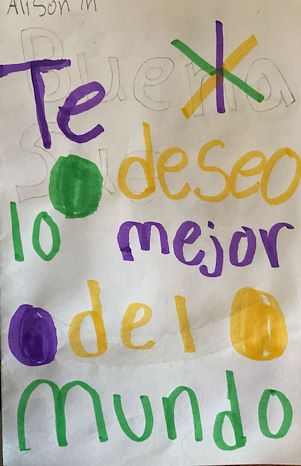 Alison M
Buena
Te
Sue
deseo
lo mejor
del
mundo